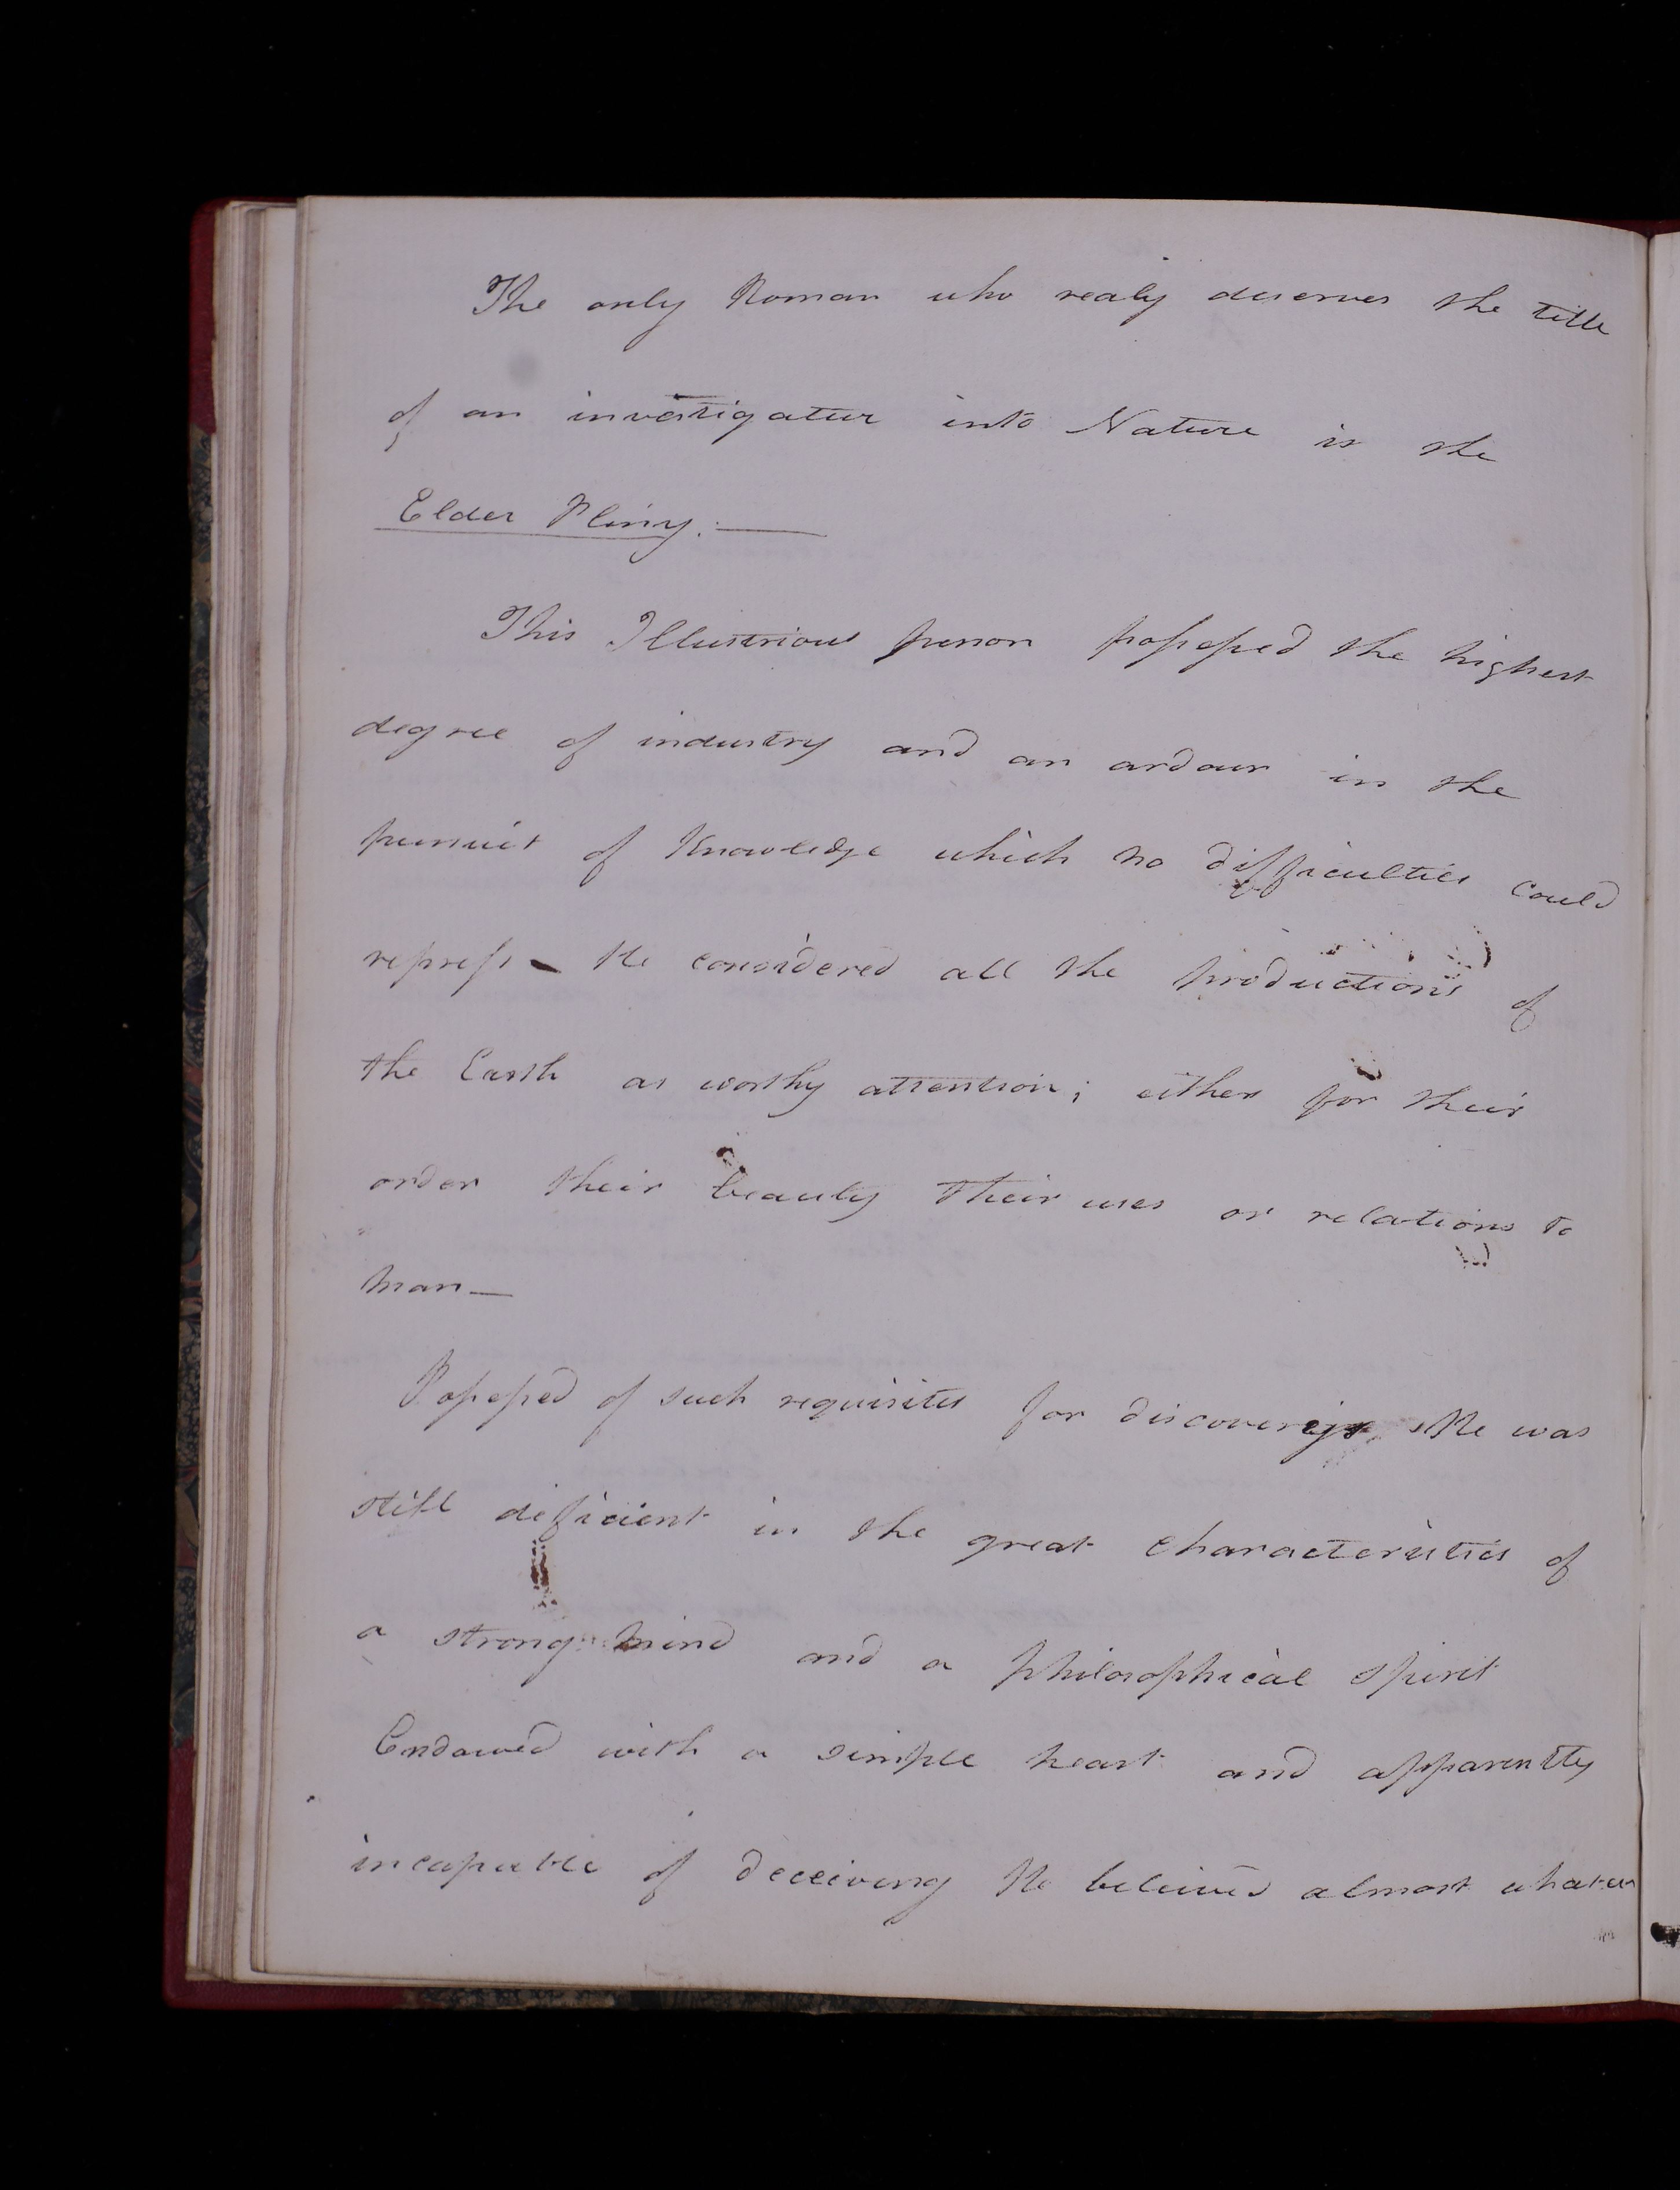 The only Roman who realy deserves the title
of an investigator into Nature is the
Elder Pliny.—
This Illustrious person possessed the highest
degree of industry and an ardour in the
pursuit of Knowledge which no difficulties could
repress – He considered all the productions of
the Earth as worthy attention; either for their
order their beauty their uses or relations to
man—
Possessed of such requisites for discovery, He was
still deficient in the great characteristics of
a strong mind and a philosophical spirit
Endowed with a simple heart and apparently
incapable of deceiving He beleived almost whatever